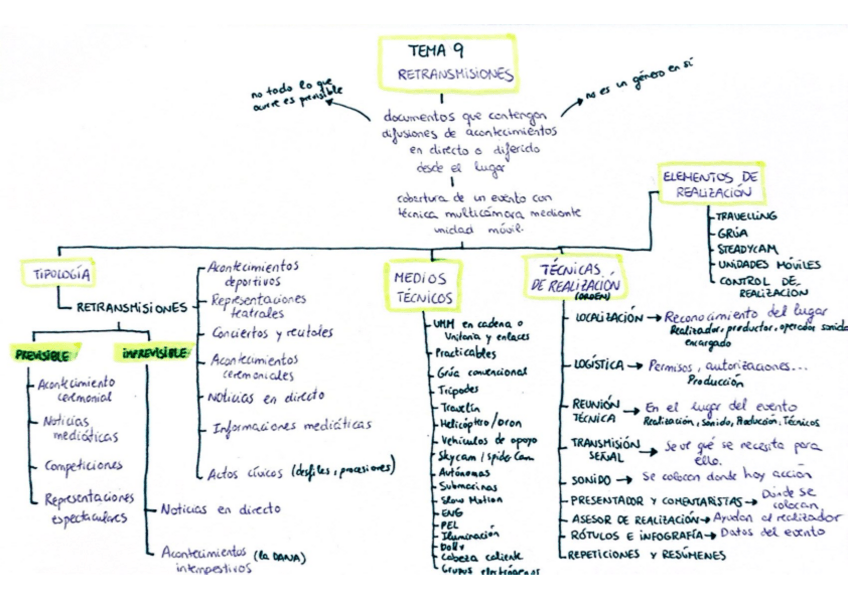 TEMA 9
RETRANSMISIONES
no todo lo que
ocurre es previsible
no es un género en sí
documentos que contengan
difusiones de acontecimientos
en directo o diferido
desde el lugar
cobertura de un evento con
técnica multicámara mediante
unidad móvil.
ELEMENTOS DE
REALIZACIÓN
TRAVELLING
GRÚA
STEADYCAM
UNIDADES MÓVILES
CONTROL DE
REALIZACIÓN
TIPOLOGÍA
RETRANSMISIONES
PREVISIBLE
IMPREVISIBLE
Acontecimiento
ceremonial
Noticias
mediáticas
Competiciones
Representaciones
espectaculares
Noticias en directo
Acontecimientos (la DANA)
intempestivos
Acontecimientos
deportivos
Representaciones
teatrales
Conciertos y recitales
Acontecimientos
ceremoniales
Noticias en directo
Informaciones mediáticas
Actos cívicos (desfiles, procesiones)
MEDIOS
TÉCNICOS
UMM en cadena o
Unitaria y enlaces
Practicables
Grúa convencional
Trípodes
Travelín
Helicóptero/Dron
Vehículos de apoyo
Skycam/Spider Cam
Autónomas
Submarinas
Slow Motion
ENG
PEL
Iluminación
Dolly
Cabeza caliente
Grupos electrógenos
TÉCNICAS
DE REALIZACIÓN
(ORDEN)
LOCALIZACIÓN → Reconocimiento del lugar
Realizador, productor, operador sonido
encargado
LOGÍSTICA → Permisos, autorizaciones...
Producción
REUNIÓN
TÉCNICA → En el lugar del evento
Realización, Sonido, Producción, Técnicos
TRANSMISIÓN
SEÑAL → Se ve qué se necesita para
ello.
SONIDO → Se colocan donde hay acción
PRESENTADOR Y COMENTARISTAS → Dónde se
colocan
ASESOR DE REALIZACIÓN → Ayudan al realizador
RÓTULOS E INFOGRAFÍA → Datos del evento
REPETICIONES Y RESÚMENES